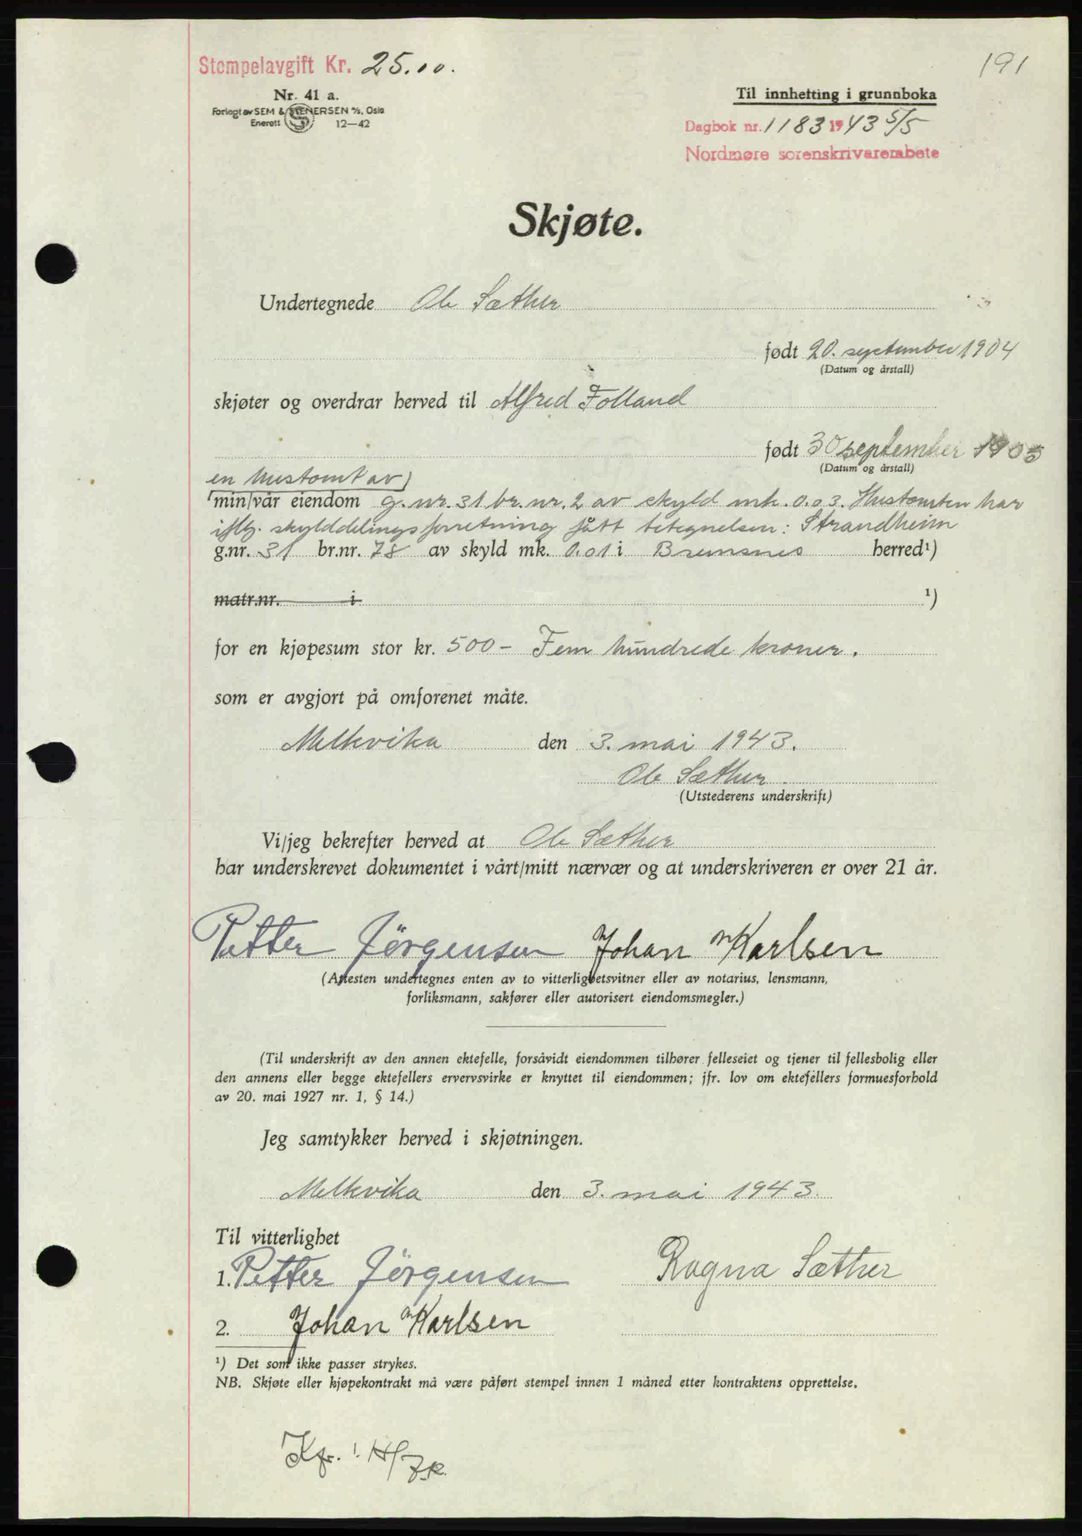 191
Stempelavgift Kr. 25.00.
Nr. 41 a.
Forlagt av SEM & STENERSEN A/S, Oslo
Enerett 12—42
Til innhetting i grunnboka
Dagbok nr. 1183 1943 5/5
Nordmøre sorenskrivarembete
Skjøte.
Undertegnede Ole Sæther
født 20. september 1904
(Datum og årstall)
skjøter og overdrar herved til Alfred Folland
født 30 september 1905
(Datum og årstall)
en hustomt av
min/vår eiendom g.nr. 31 br.nr. 2 av skyld mk. 0.03. Hustomten har
iflg. skylddelingsforretning fått betegnelsen: Strandheim
g.nr. 31 br.nr. 78 av skyld mk. 0.01 i Bremsnes herred¹)
matr.nr. i ¹)
for en kjøpesum stor kr. 500 – Fem hundrede kroner.
som er avgjort på omforenet måte.
Melkvika den 3. mai 1943.
Ole Sæther.
(Utstederens underskrift)
Vi/jeg bekrefter herved at Ole Sæther
har underskrevet dokumentet i vårt/mitt nærvær og at underskriveren er over 21 år.
Petter Jörgensen Johan M Karlsen
(Attesten undertegnes enten av to vitterlighetsvitner eller av notarius, lensmann,
forliksmann, sakfører eller autorisert eiendomsmegler.)
(Til underskrift av den annen ektefelle, forsåvidt eiendommen tilhører felleseiet og tjener til fellesbolig eller
den annens eller begge ektefellers ervervsvirke er knyttet til eiendommen; jfr. lov om ektefellers formuesforhold
av 20. mai 1927 nr. 1, § 14.)
Jeg samtykker herved i skjøtningen.
Melkvika den 3. mai 1943.
Til vitterlighet
1. Petter Jörgensen Ragna Sæther
2. Johan M Karlsen
¹) Det som ikke passer strykes.
NB. Skjøte eller kjøpekontrakt må være påført stempel innen 1 måned etter kontraktens opprettelse.